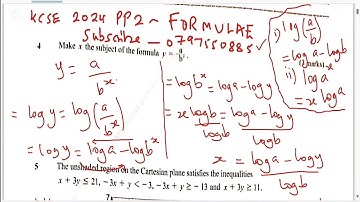 KCSE 2024 PP2 ~ FORMULAE
Subscribe - 0797550885
4 Make x the subject of the formula y = a/b^x.
(2 marks)
y = a/b^x
= log y = log(a/b^x)
= log y = log a - log b^x
= log b^x = log a - log y
= x log b = log a - log y
log b log b
x = log a - log y
log b
i) log(a/b)
= log a - log b
ii) log a^x
= x log a
5 The unshaded region on the Cartesian plane satisfies the inequalities
x + 3y ≤ 21, −3x + y < −3, −3x + y ≥ −13 and x + 3y ≥ 11.